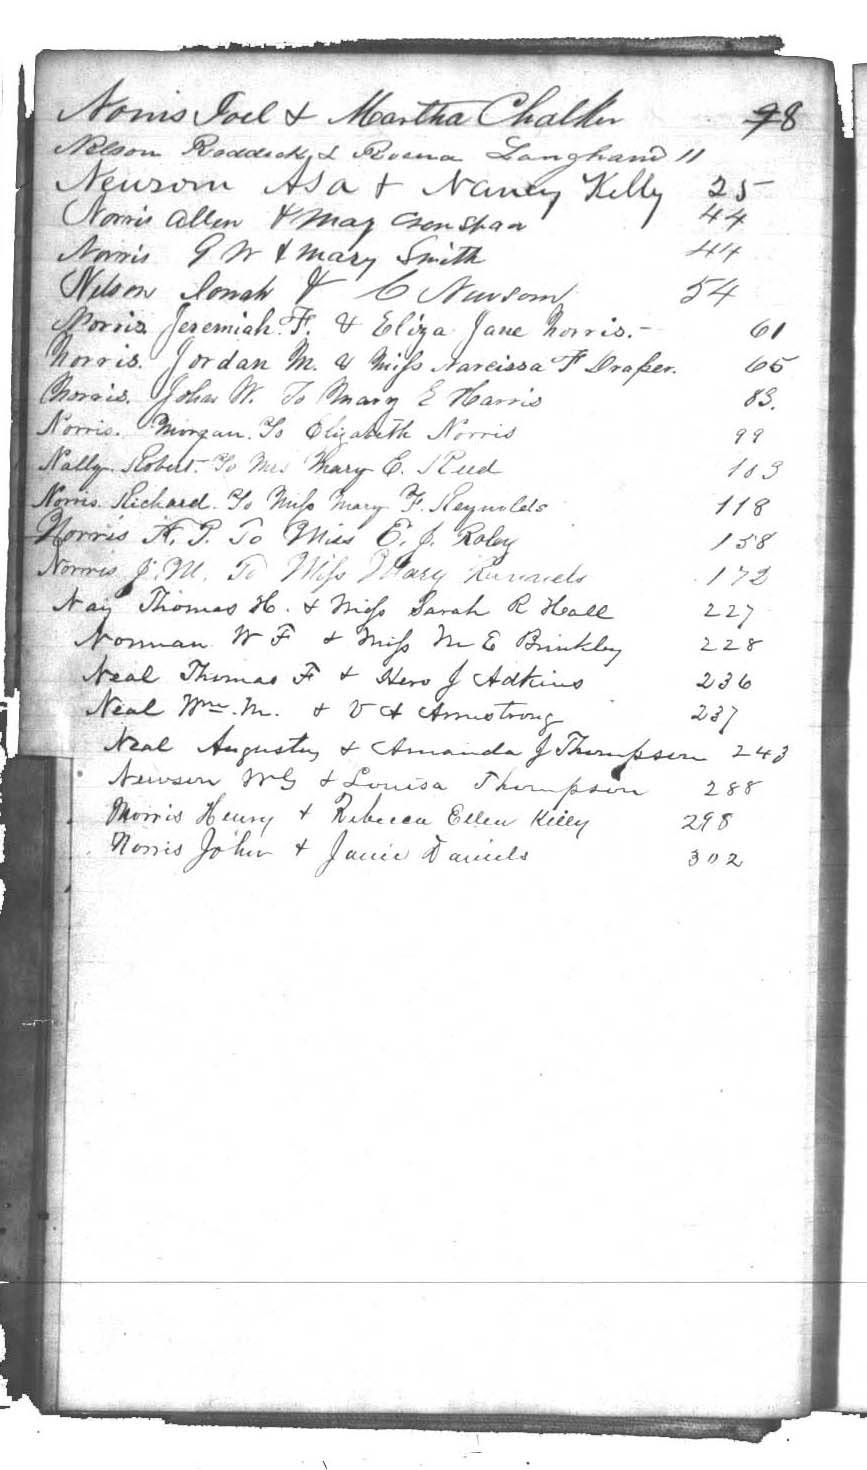 Norris Joel & Martha Chalker 98
Nelson Roddick & Rosena Langhand 11
Newsom Asa & Nancy Kelly 25
Norris Allen & May Crenshaw 44
Norris G W & Mary Smith 44
Nelson Jonah & C Newsom 54
Norris Jeremiah F. & Eliza Jane Norris.- 61
Norris. Jordan M. & Miss Narcissa F Draper. 65
Norris. John W. To Mary E Harris 83.
Norris. Morgan. To Elizabeth Norris 99
Nally Robert. To Mrs Mary E. Reed 103
Norris Richard. To Miss Mary F. Reynolds 118
Norris A. P. To Miss E. J. Roley 158
Norris J. M. To Miss Mary Runnels 172
Nay Thomas H. & Miss Sarah R Hall 227
Norman W F & Miss M E Brinkley 228
Neal Thomas F & J Adkins 236
Neal Wm. M. & V A Armstrong 237
Neal Augustus & Amanda J Thompson 243
Newsom W G & Louisa Thompson 288
Morris Henry & Rebecca Ellen Kelly 298
Norris John & Janie Daniels 302